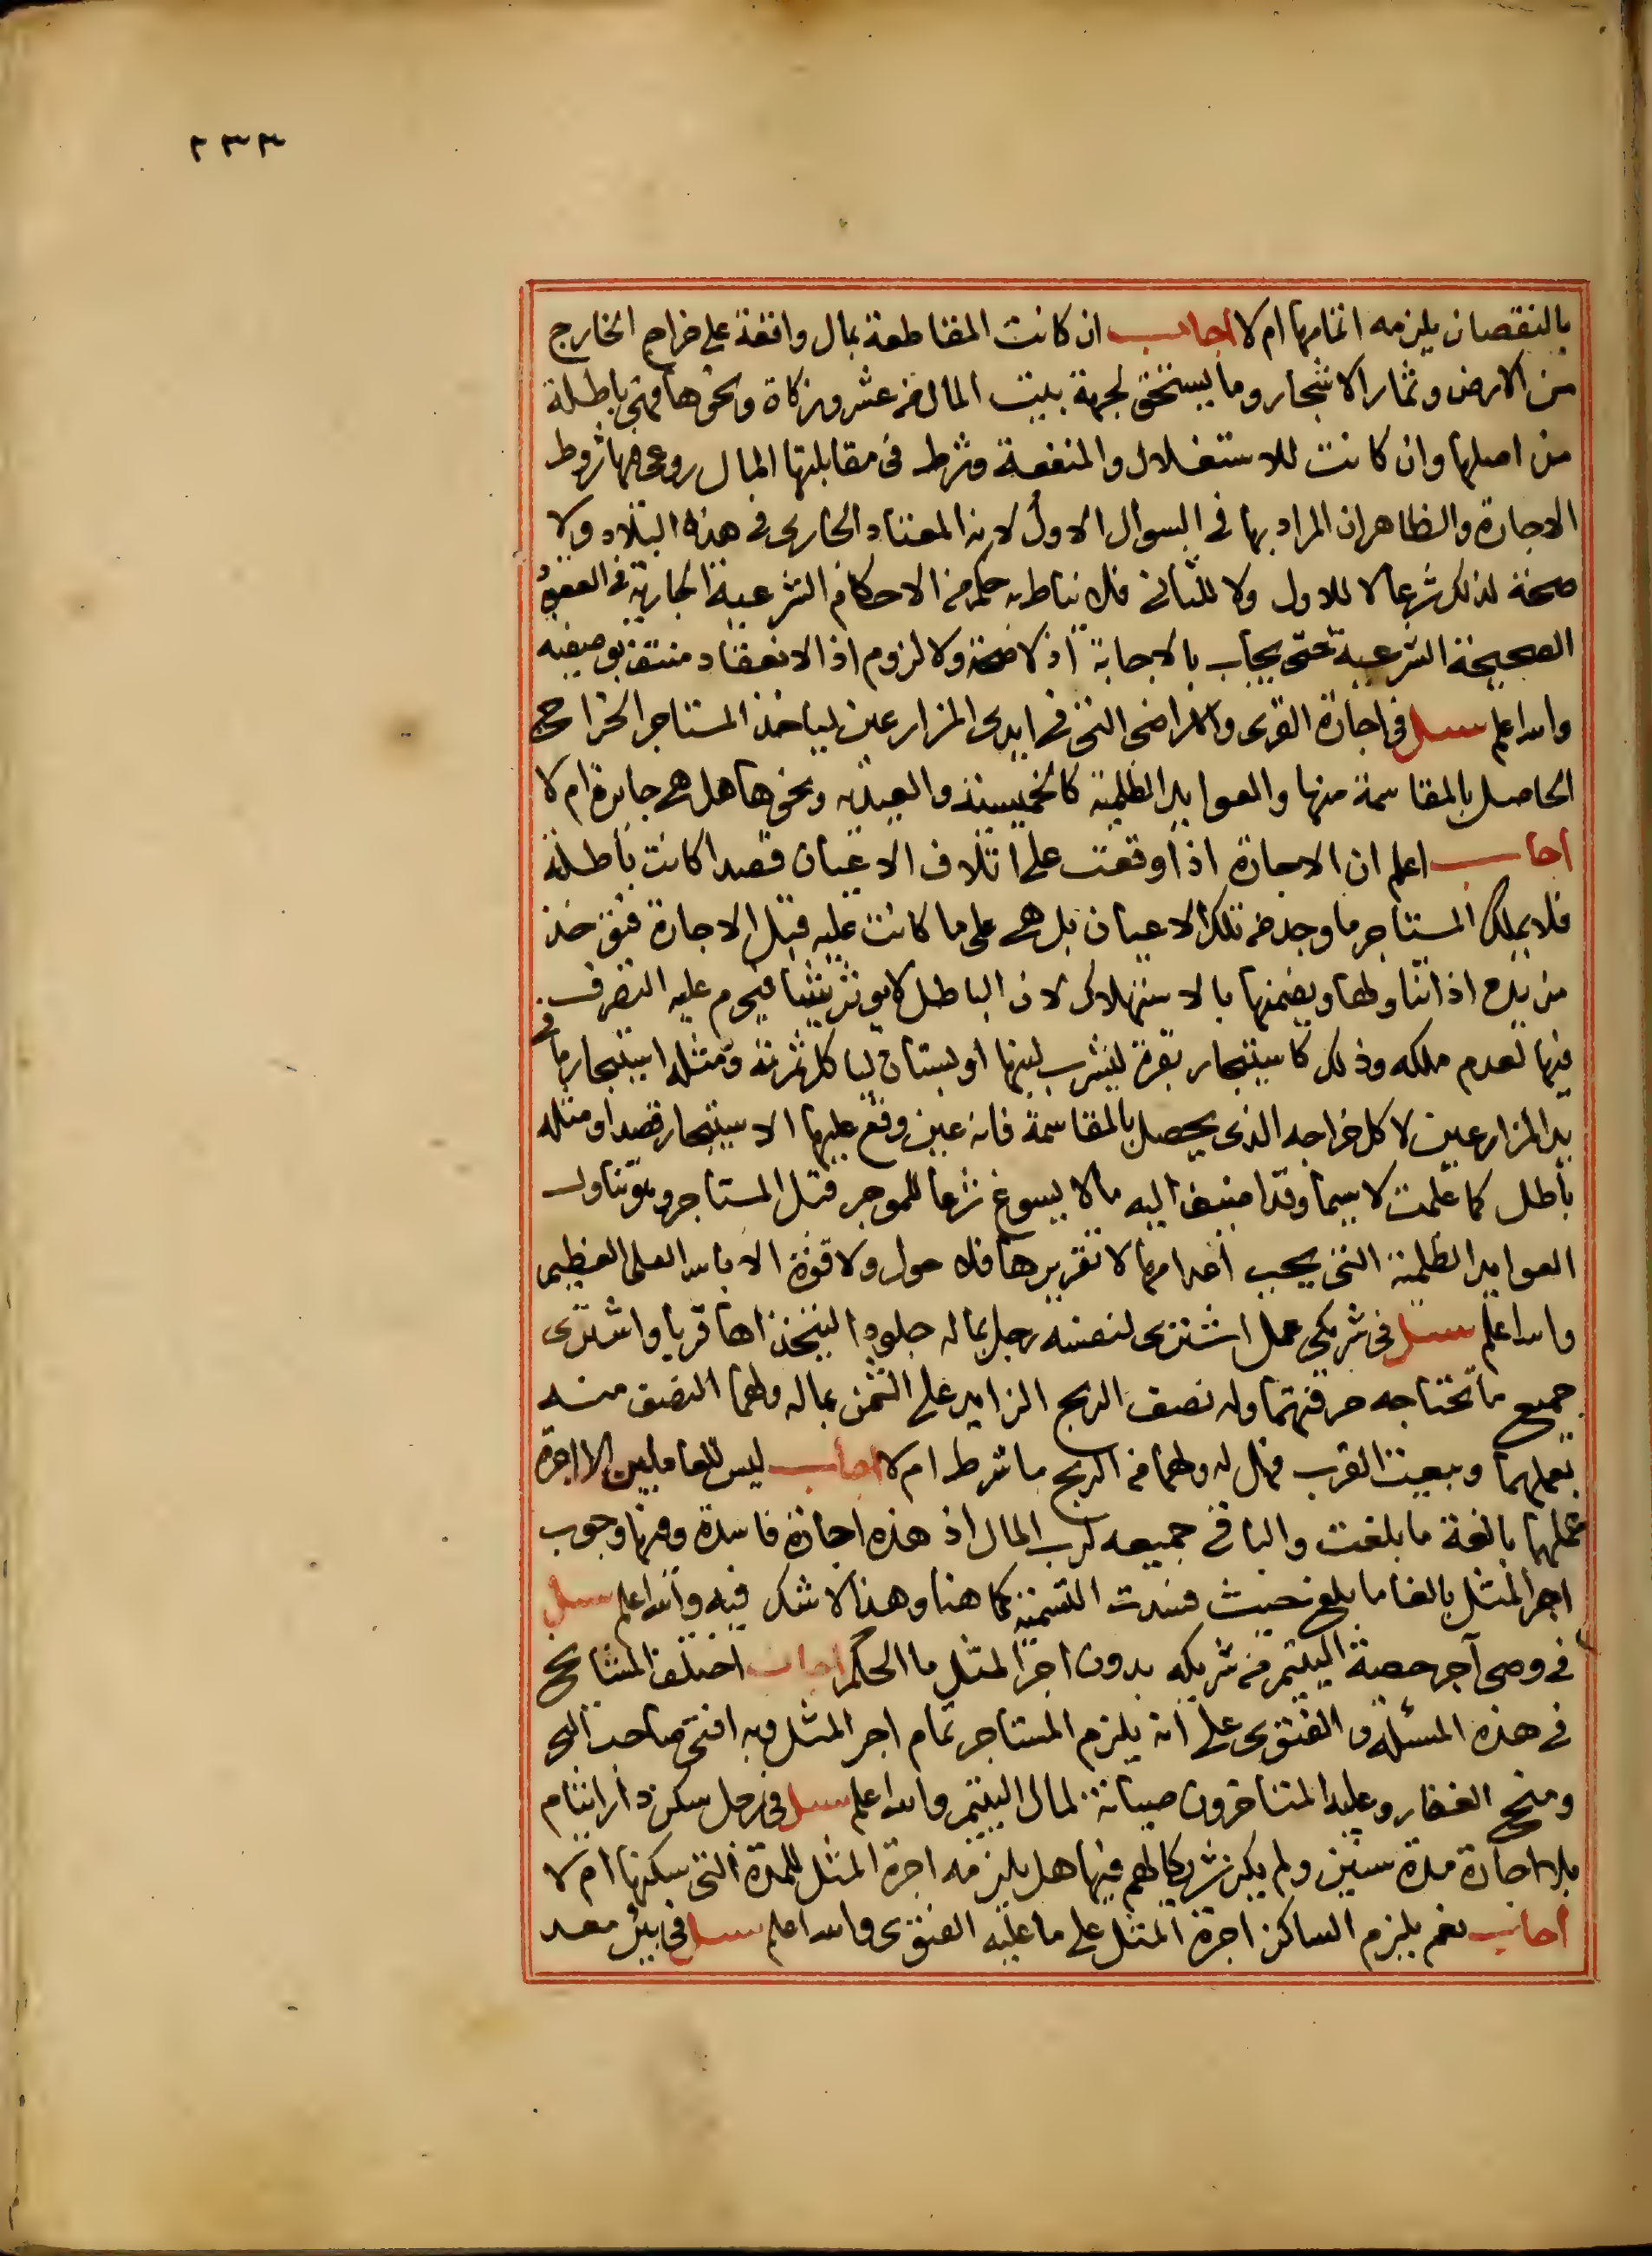 ٢٣٣
بالنقصان يلزمه اتمامها ام لا اجاب ان كانت المقاطعة بمال واقعة على خراج الخارج
من الارض وثمار الاشجار وما يستحق لجهة بيت المال من عشر وزكاة ونحوها فهي باطلة
من اصلها وان كانت للاستغلال والمنفعة وشرط في مقابلتها المال روعي فيها شروط
الاجارة والظاهر ان المراد بها في السوال الاول لانه المعتاد الجاري في هذه البلاد ولا
صحة لذلك شرعا لا للاول ولا للثاني فلا يناط به حكم من الاحكام الشرعية الجارية في العقود
الصحيحة الشرعية حتى يجاب بالاجابة اذ لا صحة ولا لزوم اذ الانعقاد منتف بوصفيه
والله اعلم سئل في اجارة القرى والاراضي التي في ايدي المزارعين لياخذ المستاجر الخراج
الحاصل بالمقاسمة منها والعوايد الظلمية كالخميسية والعيدية ونحوها هل هي جايزة ام لا
اجاب اعلم ان الاجارة اذا وقعت على اتلاف الاعيان قصدا كانت باطلة
فلا يملك المستاجر ما وجد من تلك الاعيان بل هي على ما كانت عليه قبل الاجارة فتوخذ
من يده اذا تناولها ويضمنها بالاستهلاك لان الباطل لا يوثر شيئا فيحرم عليه التصرف
فيها لعدم ملكه وذلك كاستيجار بقرة ليشرب لبنها او بستان لياكل ثمرته ومثله استيجار ما في
يد المزارعين لاكل خراجه الذي يحصل بالمقاسمة فانه عين وقع عليها الاستيجار قصدا ومثله
باطل كما علمت لا سيما وقد اضيف اليه ما لا يسوغ شرعا للموجر قبل المستاجر وهو تناول
العوايد الظلمية التي يجب اعدامها لا تقريرها فلا حول ولا قوة الا بالله العلي العظيم
والله اعلم سئل في شريكي عمل اشترى لنفسه رجل بماله جلودا ليتخذاها قربا واشترى
جميع ما تحتاجه حرفتهما وله نصف الربح الزايد على الثمن بماله ولهما النصف منه
بعملهما وبيعت القرب فهل له ولهما من الربح ما شرط ام لا اجاب ليس للعاملين الا اجرة
عملهما بالغة ما بلغت والباقي جميعه لرب المال اذ هذه اجارة فاسدة وفيها وجوب
اجر المثل بالغا ما بلغ حيث فسدت التسمية كما هنا وهذا لا شك فيه والله اعلم سئل
في وصي آجر حصة اليتيم من شريكه بدون اجر المثل ما الحكم اجاب اختلف المشايخ
في هذه المسئلة والفتوى على انه يلزم المستاجر تمام اجر المثل وبه افتى صاحب البحر
ومنح الغفار وعليه المتاخرون صيانة لمال اليتيم والله اعلم سئل في رجل سكن دار ايتام
بلا اجارة مدة سنين ولم يكن شريكا لهم فيها هل يلزمه اجرة المثل للمدة التي سكنها ام لا
اجاب نعم يلزم الساكن اجرة المثل على ما عليه الفتوى والله اعلم سئل في بير معد